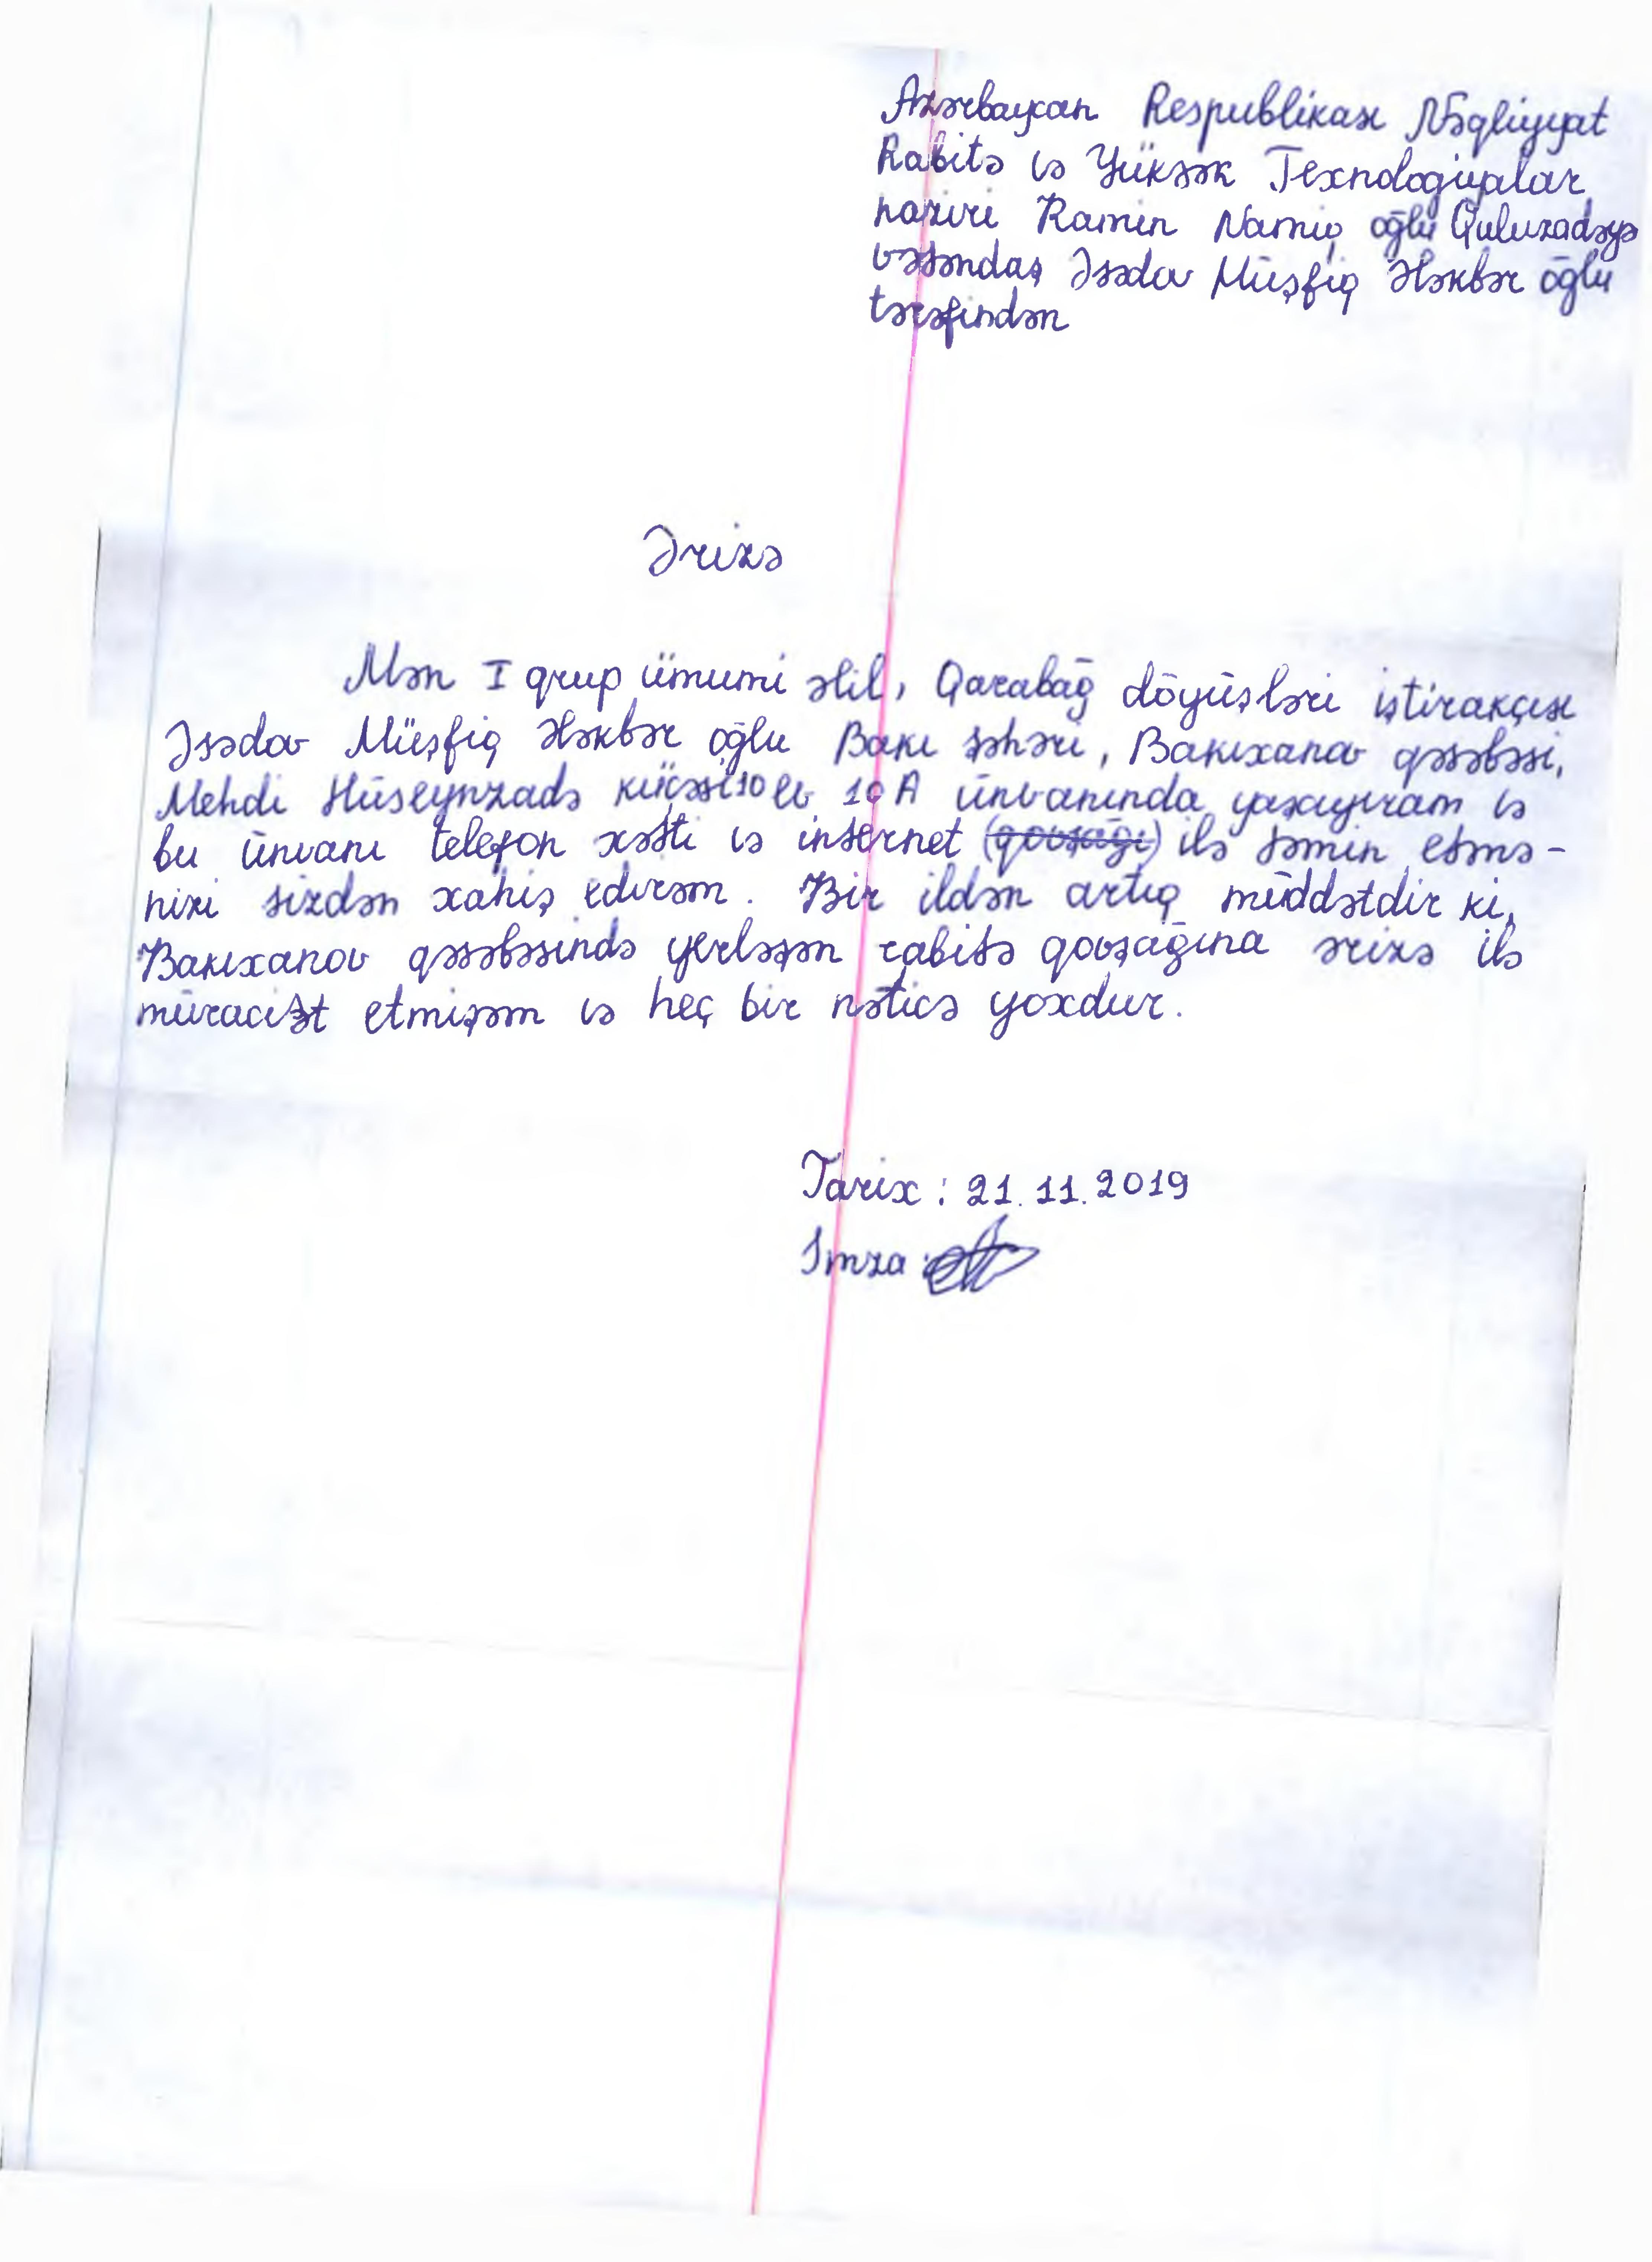 Azərbaycan Respublikası Nəqliyyat
Rabitə və Yüksək Texnologiyalar
naziri Ramin Namiq oğlu Quluzadəyə
vətəndaş Əsədov Müşfiq Ələkbər oğlu
tərəfindən
Ərizə
Mən I qrup ümumi əlil, Qarabağ döyüşləri iştirakçısı
Əsədov Müşfiq Ələkbər oğlu Bakı şəhəri, Bakıxanov qəsəbəsi,
Mehdi Hüseynzadə küçəsi 10 ev 10 A ünvanında yaşayıram və
bu ünvanı telefon xətti və internet (qovşağı) ilə təmin etmə-
nizi sizdən xahiş edirəm. Bir ildən artıq müddətdir ki,
Bakıxanov qəsəbəsində yerləşən rabitə qovşağına ərizə ilə
müraciət etmişəm və heç bir nəticə yoxdur.
Tarix : 21.11.2019
İmza :